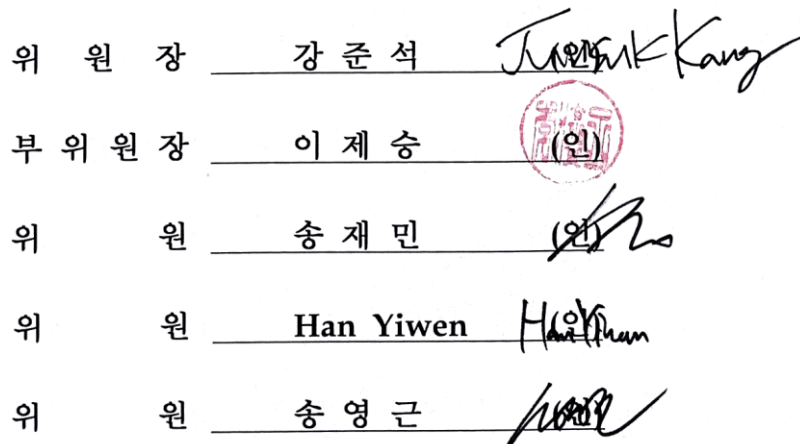 위 원 장 강 준 석 (인) Junsuk Kang
부 위 원 장 이 제 승 (인)
위 원 송 재 민 (인)
위 원 Han Yiwen (인)
위 원 송 영 근 (인)